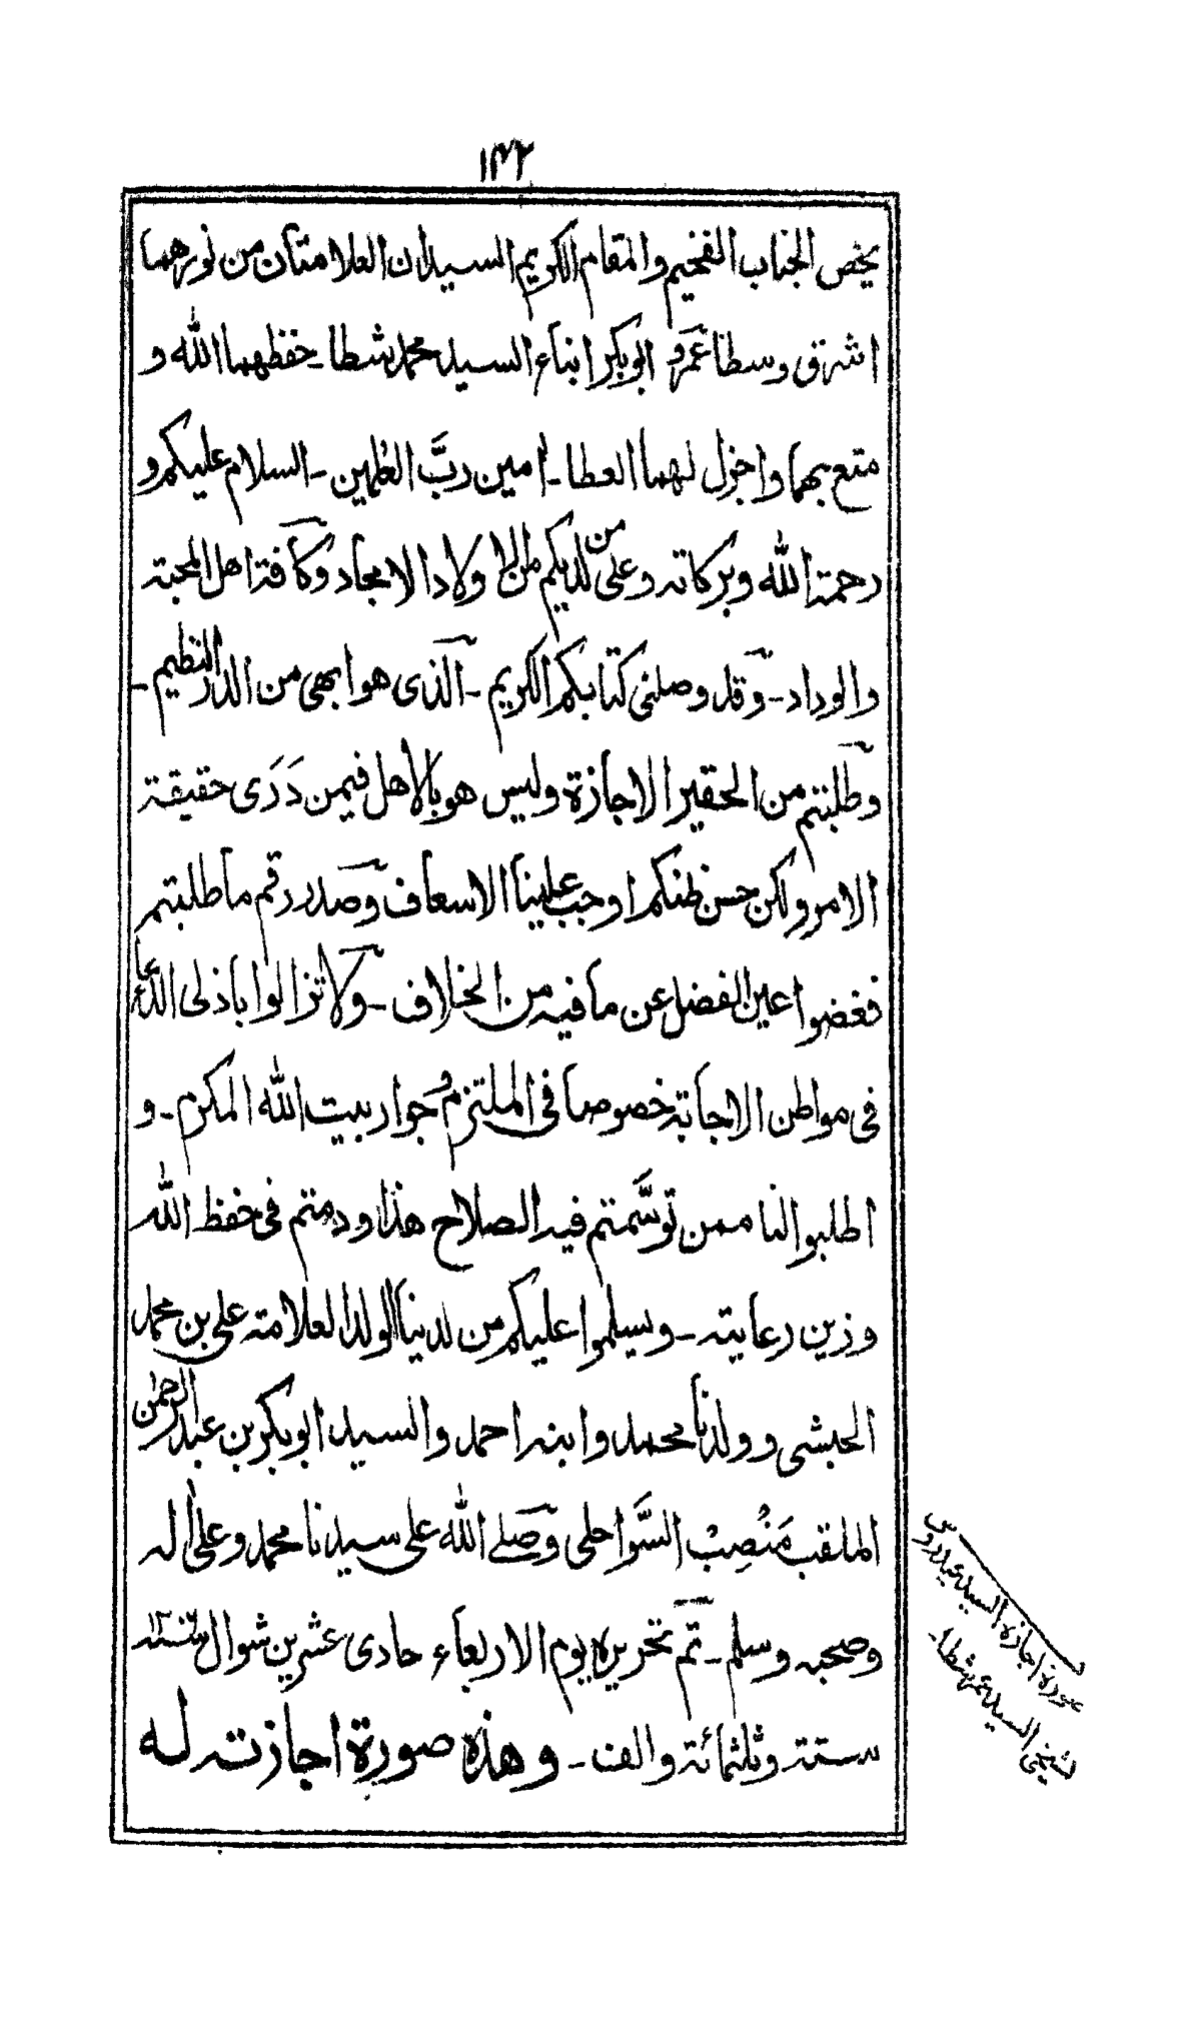 ١٤٢
يخص الجناب الفخيم والمقام الكريم السيدان العلامتان من نورهما
اشرق وسطا عمر و ابوبكر ابناء السيد محمد شطا ـ حفظهما الله و
متع بهما واجزل لهما العطا ـ امين ربَّ العلمين ـ السلام عليكم و
رحمة الله وبركاته وعلى من لديكم من الاولاد الامجاد وكافة اهل المحبة
والوداد ـ وقد وصلني كتابكم الكريم ـ الذى هو ابهى من الدر النظيم ـ
وطلبتم من الحقير الاجازة وليس هو بالاهل فيمن دَرَى حقيقة
الامر ولكن حسن ظنكم اوجب علينا الاسعاف وصدر رقم ما طلبتم
فغضوا عين الفضل عن ما فيه من الخلاف ـ ولا تزالوا باذلى الدعاء
فى مواطن الاجابة خصوصا فى الملتزم وجوار بيت الله المكرم ـ و
اطلبوا لنا ممن توسَّمتم فيه الصلاح هذا ودمتم فى حفظ الله
وزين رعايته ـ ويسلموا عليكم من لدينا الولد العلامة على بن محمد
الحبشى وولدنا محمد وابنه احمد والسيد ابوبكر بن عبد الرحمن
الملقب مَنْصِبْ السَّواحلى وصلى الله على سيدنا محمد وعلى اله
وصحبه وسلم ـ تم تحريره يوم الاربعاء حادى عشرين شوال سنة ١٣٠٦
ستة وثلثمائة والف ـ وهذه صورة اجازته له
صورة اجازة السيد عيدروس
لشيخى السيد عمر شطا ـ